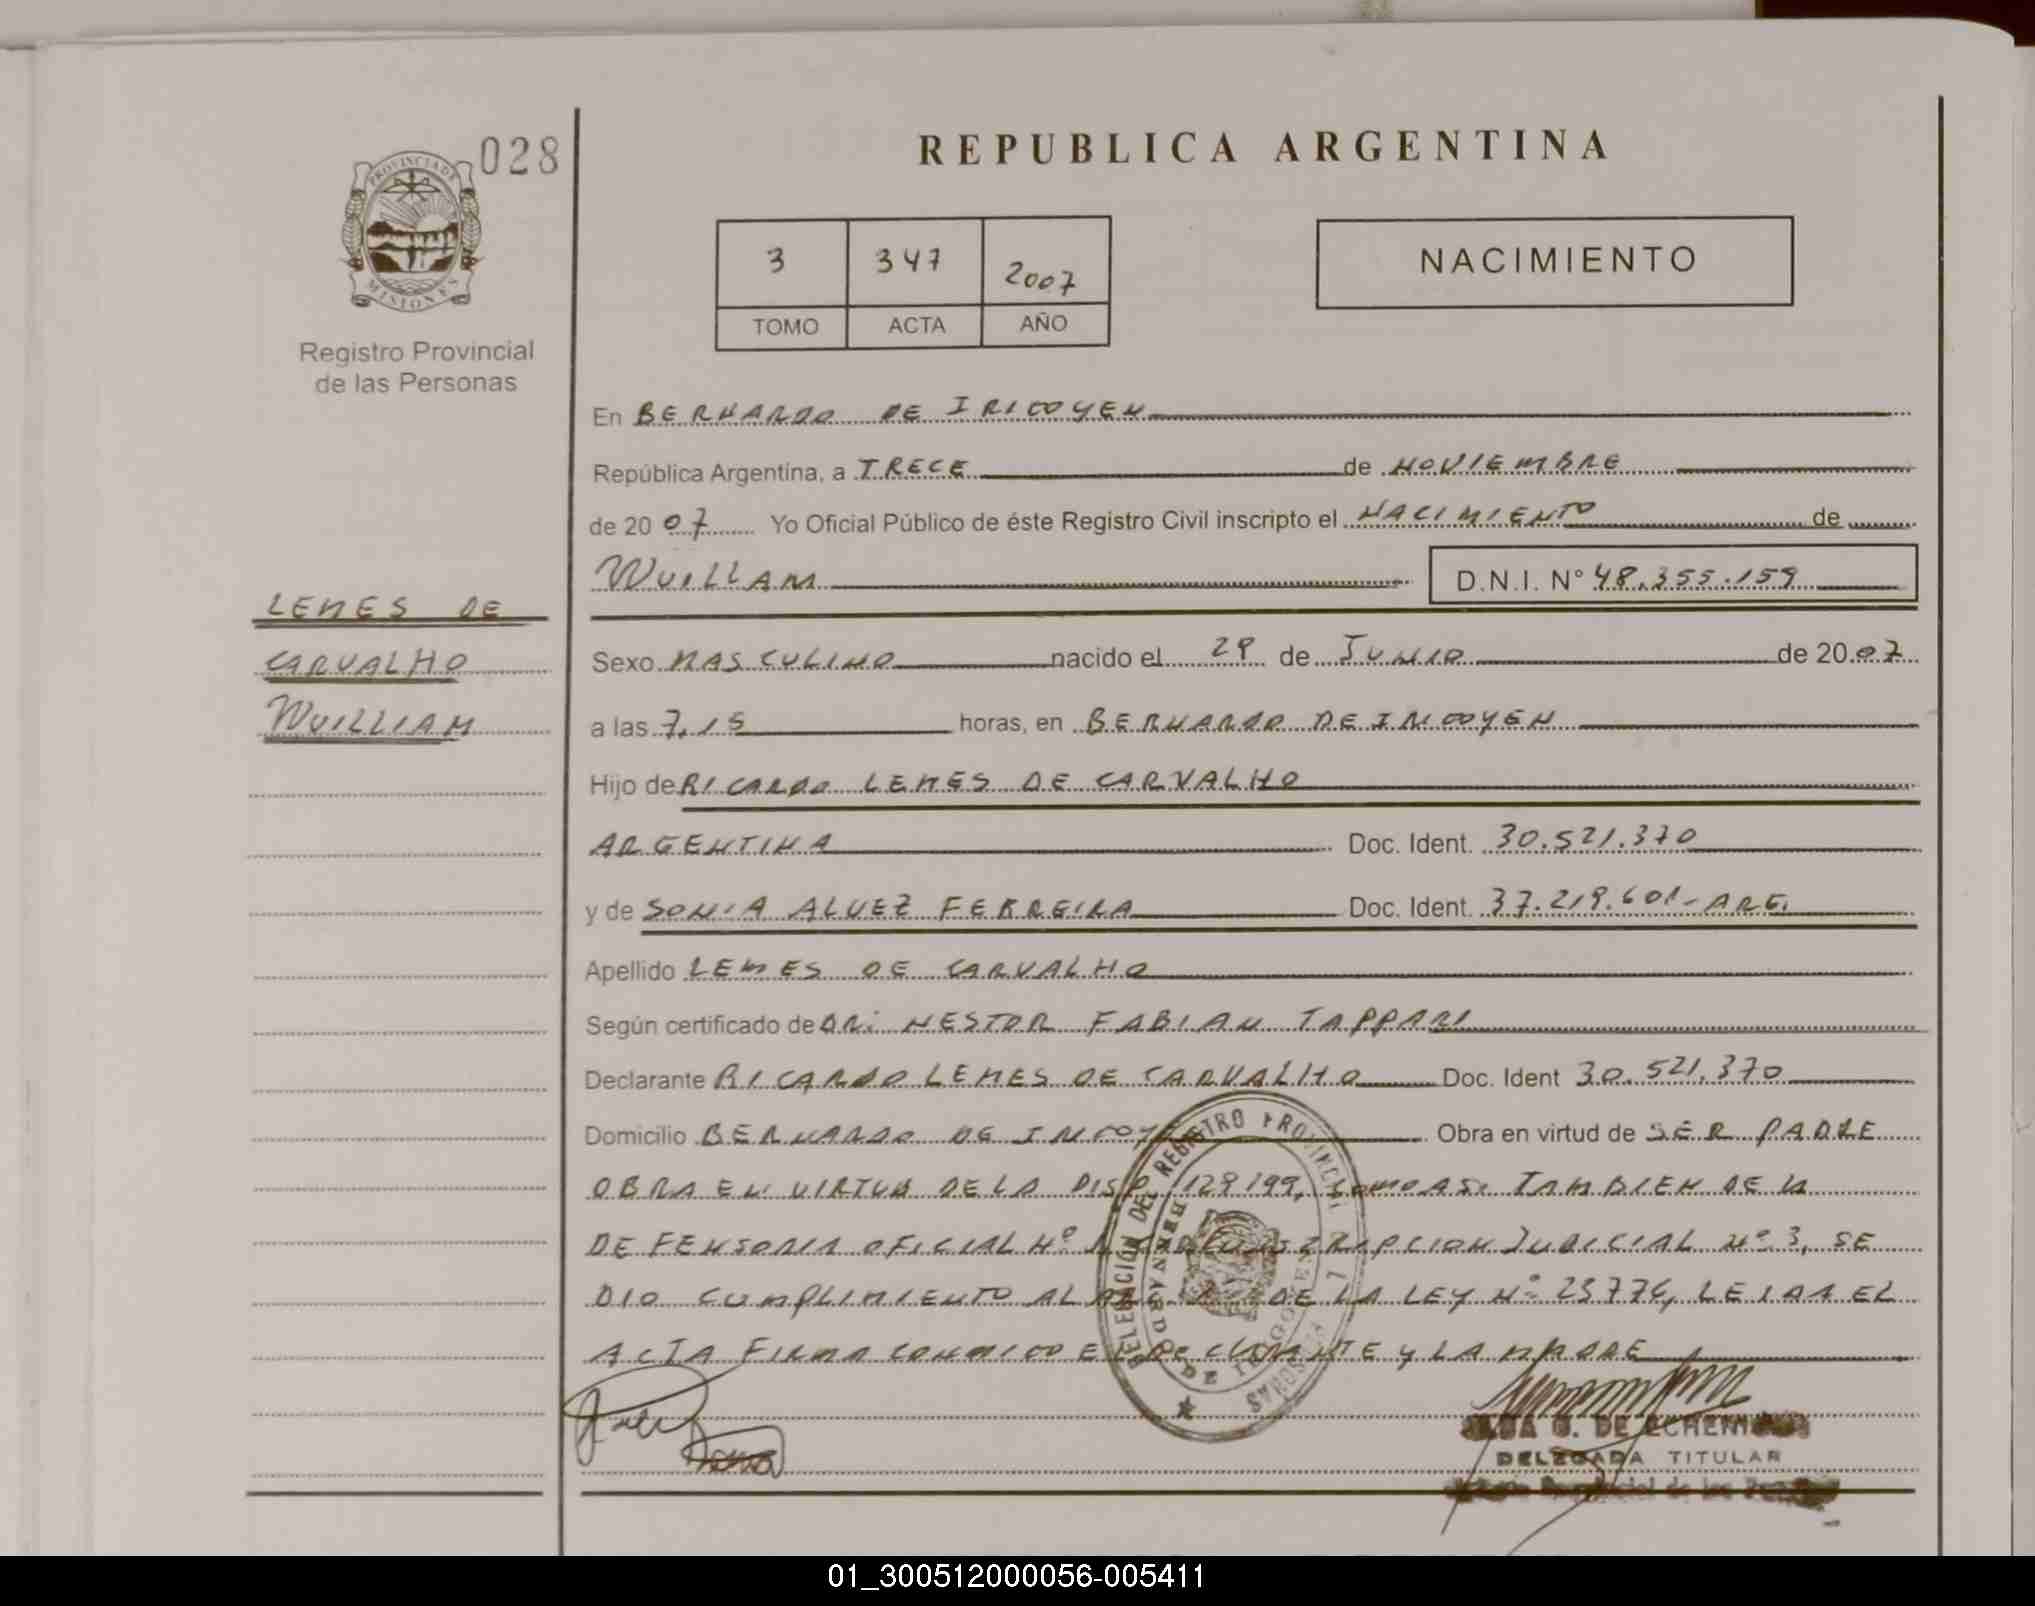 028
PROVINCIA DE
MISIONES
Registro Provincial
de las Personas
REPUBLICA ARGENTINA
3 347 2007
TOMO ACTA AÑO
NACIMIENTO
En BERNARDO DE IRIGOYEN
República Argentina, a TRECE de NOVIEMBRE
de 2007 Yo Oficial Público de éste Registro Civil inscripto el NACIMIENTO de
WUILLAM D.N.I. N° 48.355.159
LEMES DE
CARVALHO
WUILLIAM
Sexo MASCULINO nacido el 29 de JUNIO de 2007
a las 7,15 horas, en BERNARDO DE IRIGOYEN
Hijo de RICARDO LEMES DE CARVALHO
ARGENTINA Doc. Ident. 30.521.370
y de SONIA ALVEZ FERREIRA Doc. Ident. 37.219.601-ARG.
Apellido LEMES DE CARVALHO
Según certificado de DR: NESTOR FABIAN TAPPARI
Declarante RICARDO LEMES DE CARVALHO Doc. Ident 30.521.370
Domicilio BERNARDO DE IRIGOYEN Obra en virtud de SER PADRE
OBRA EN VIRTUD DE LA DISP. 129/99, TAMBIEN DE LA
DEFENSORIA OFICIAL N° JUDICIAL N° 3, SE
DIO CUMPLIMIENTO AL DE LA LEY N° LEIDA EL
ACTA FIRMA CONMIGO EL DECLARANTE Y LA MADRE
DELEGACIÓN DEL REGISTRO PROVINCIAL PERSONAS
BERNARDO DE IRIGOYEN
DELEGADA TITULAR
01_300512000056-005411